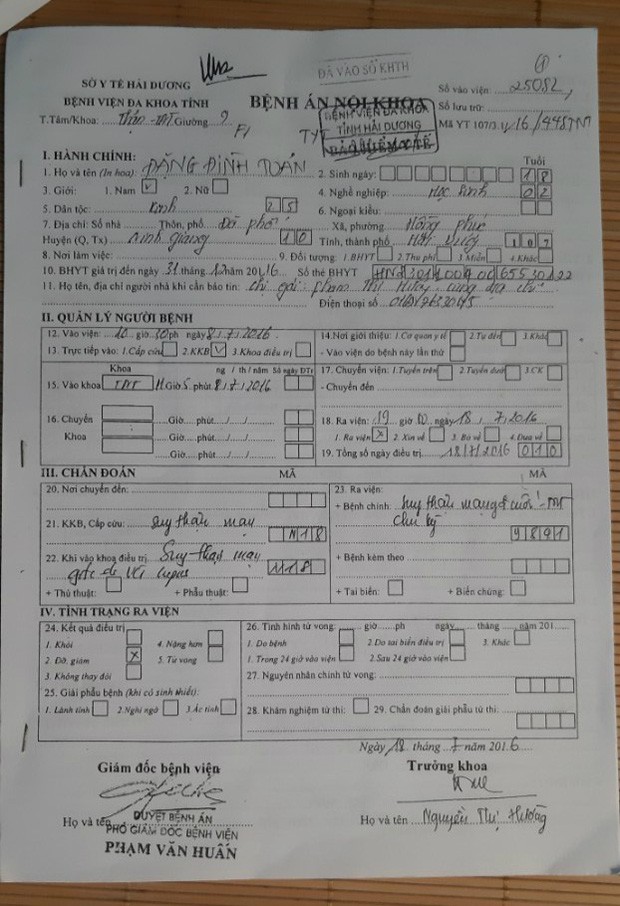 ĐÃ VÀO SỔ KHTH
SỞ Y TẾ HẢI DƯƠNG
BỆNH VIỆN ĐA KHOA TỈNH
T.Tâm/Khoa: Thận - TNT Giường 9
BỆNH ÁN NỘI KHOA
BỆNH VIỆN ĐA KHOA
TỈNH HẢI DƯƠNG
BẢO HIỂM Y TẾ
Số vào viện: 25082
Số lưu trữ:
Mã YT 107/3
I. HÀNH CHÍNH:
Tuổi
1. Họ và tên (In hoa): ĐẶNG ĐÌNH TOÁN 2. Sinh ngày: 18
3. Giới: 1. Nam ✓ 2. Nữ 4. Nghề nghiệp: Học sinh 02
5. Dân tộc: Kinh 25 6. Ngoại kiều:
7. Địa chỉ: Số nhà Thôn, phố Xã, phường Hồng Phúc
Huyện (Q, Tx) Ninh Giang 10 Tỉnh, thành phố Hải Dương 107
8. Nơi làm việc: 9. Đối tượng: 1.BHYT 2.Thu phí 3.Miễn 4.Khác
10. BHYT giá trị đến ngày 31 tháng 12 năm 2016 Số thẻ BHYT
11. Họ tên, địa chỉ người nhà khi cần báo tin: chị gái: Phạm Thị cùng địa chỉ
Điện thoại số
II. QUẢN LÝ NGƯỜI BỆNH
12. Vào viện: 10 giờ 30 ph ngày 8/7/2016 14.Nơi giới thiệu: 1.Cơ quan y tế 2.Tự đến 3.Khác
13. Trực tiếp vào: 1.Cấp cứu 2.KKB ✓ 3.Khoa điều trị - Vào viện do bệnh này lần thứ
Khoa ng / th / năm Số ngày ĐTr
17. Chuyển viện: 1.Tuyến trên 2.Tuyến dưới 3.CK
15. Vào khoa TNT 11 Giờ 5 phút 8/7/2016 - Chuyển đến
16. Chuyển Giờ phút / /
Khoa Giờ phút / /
Giờ phút / /
18. Ra viện: 19 giờ 00 ngày 18/7/2016
1. Ra viện X 2. Xin về 3. Bỏ về 4.Đưa về
19. Tổng số ngày điều trị 18/7/2016 010
III. CHẨN ĐOÁN MÃ MÃ
20. Nơi chuyển đến:
21. KKB, Cấp cứu: Suy thận mạn N18
22. Khi vào khoa điều trị Suy thận mạn
lupus
+ Thủ thuật: + Phẫu thuật:
23. Ra viện:
+ Bệnh chính: Suy thận mạn gđ cuối - TNT
chu kỳ
+ Bệnh kèm theo
+ Tai biến: + Biến chứng:
IV. TÌNH TRẠNG RA VIỆN
24. Kết quả điều trị
1. Khỏi 4. Nặng hơn
2. Đỡ, giảm X 5. Tử vong
3. Không thay đổi
25. Giải phẫu bệnh (khi có sinh thiết):
1. Lành tính 2.Nghi ngờ 3.Ác tính
26. Tình hình tử vong: giờ ph ngày tháng năm 201
1. Do bệnh 2.Do tai biến điều trị 3. Khác
1. Trong 24 giờ vào viện 2.Sau 24 giờ vào viện
27. Nguyên nhân chính tử vong:
28. Khám nghiệm tử thi: 29. Chẩn đoán giải phẫu tử thi:
Ngày 18 tháng 7 năm 2016
Giám đốc bệnh viện Trưởng khoa
Họ và tên
DUYỆT BỆNH ÁN
PHÓ GIÁM ĐỐC BỆNH VIỆN
PHẠM VĂN HUẤN
Họ và tên Nguyễn Thị Hương